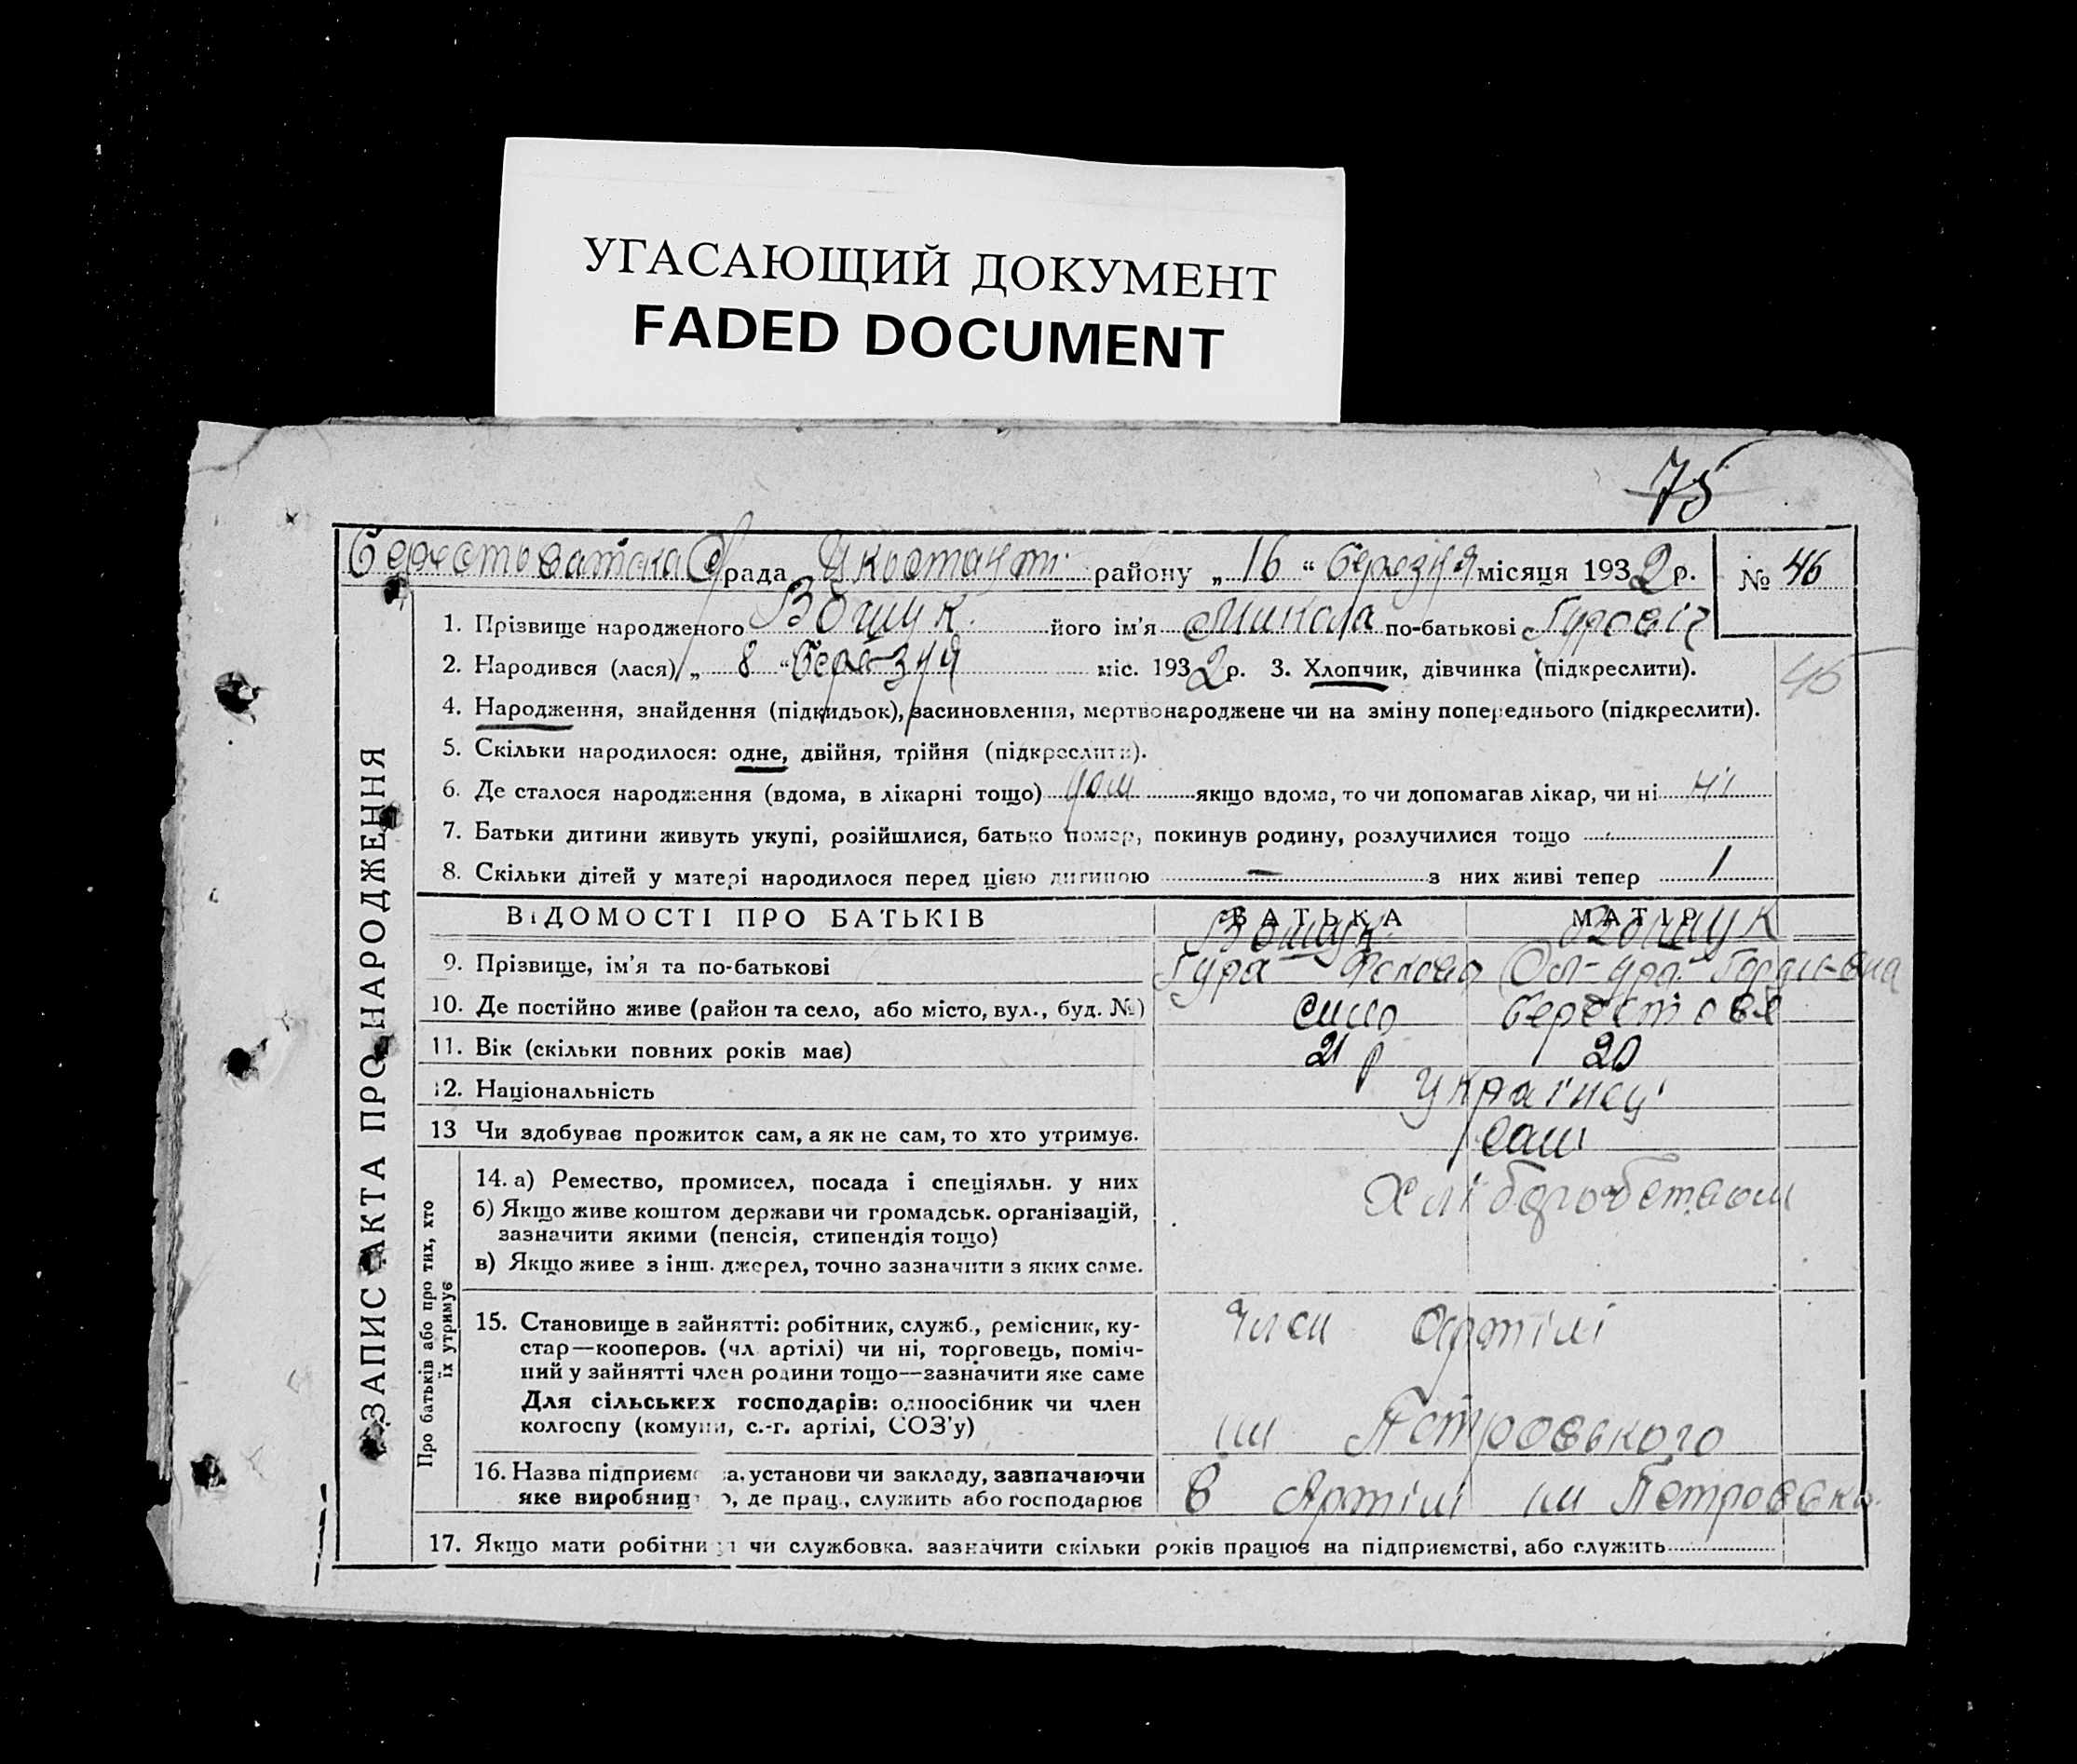 УГАСАЮЩИЙ ДОКУМЕНТ
FADED DOCUMENT
75
рада району „ 16 “ березня місяця 1932 р. № 46
1. Прізвище народженого Вощук його ім'я Микола по-батькові Гуровіч
2. Народився (лася) „ 8 “ березня міс. 1932 р. 3. Хлопчик, дівчинка (підкреслити).
46
4. Народження, знайдення (підкидьок), засиновлення, мертвонароджене чи на зміну попереднього (підкреслити).
5. Скільки народилося: одне, двійня, трійня (підкреслити).
6. Де сталося народження (вдома, в лікарні тощо) дом якщо вдома, то чи допомагав лікар, чи ні ні
7. Батьки дитини живуть укупі, розійшлися, батько помер, покинув родину, розлучилися тощо
8. Скільки дітей у матері народилося перед цією дитиною — з них живі тепер 1
ЗАПИС АКТА ПРО НАРОДЖЕННЯ
ВІДОМОСТІ ПРО БАТЬКІВ БАТЬКА МАТІР
Вощук Вощук
9. Прізвище, ім'я та по-батькові Гура
10. Де постійно живе (район та село, або місто, вул., буд. №) село Берестове
11. Вік (скільки повних років має) 21 р 20
12. Національність Українці
13 Чи здобуває прожиток сам, а як не сам, то хто утримує. сам
Про батьків або про тих, хто їх утримує
14. а) Ремество, промисел, посада і спеціяльн. у них
б) Якщо живе коштом держави чи громадськ. організацій,
зазначити якими (пенсія, стипендія тощо)
в) Якщо живе з інш. джерел, точно зазначити з яких саме.
15. Становище в зайнятті: робітник, служб., ремісник, ку-
стар—кооперов. (чл. артілі) чи ні, торговець, поміч-
ний у зайнятті член родини тощо—зазначити яке саме
Для сільських господарів: одноосібник чи член
колгоспу (комуни, с.-г. артілі, СОЗ'у)
член Артілі
ім Петровського
16. Назва підприємства, установи чи закладу, зазначаючи
яке виробництво, де прац., служить або господарює
В Артілі ім Петровськ.
17. Якщо мати робітниця чи службовка. зазначити скільки років працює на підприємстві, або служить